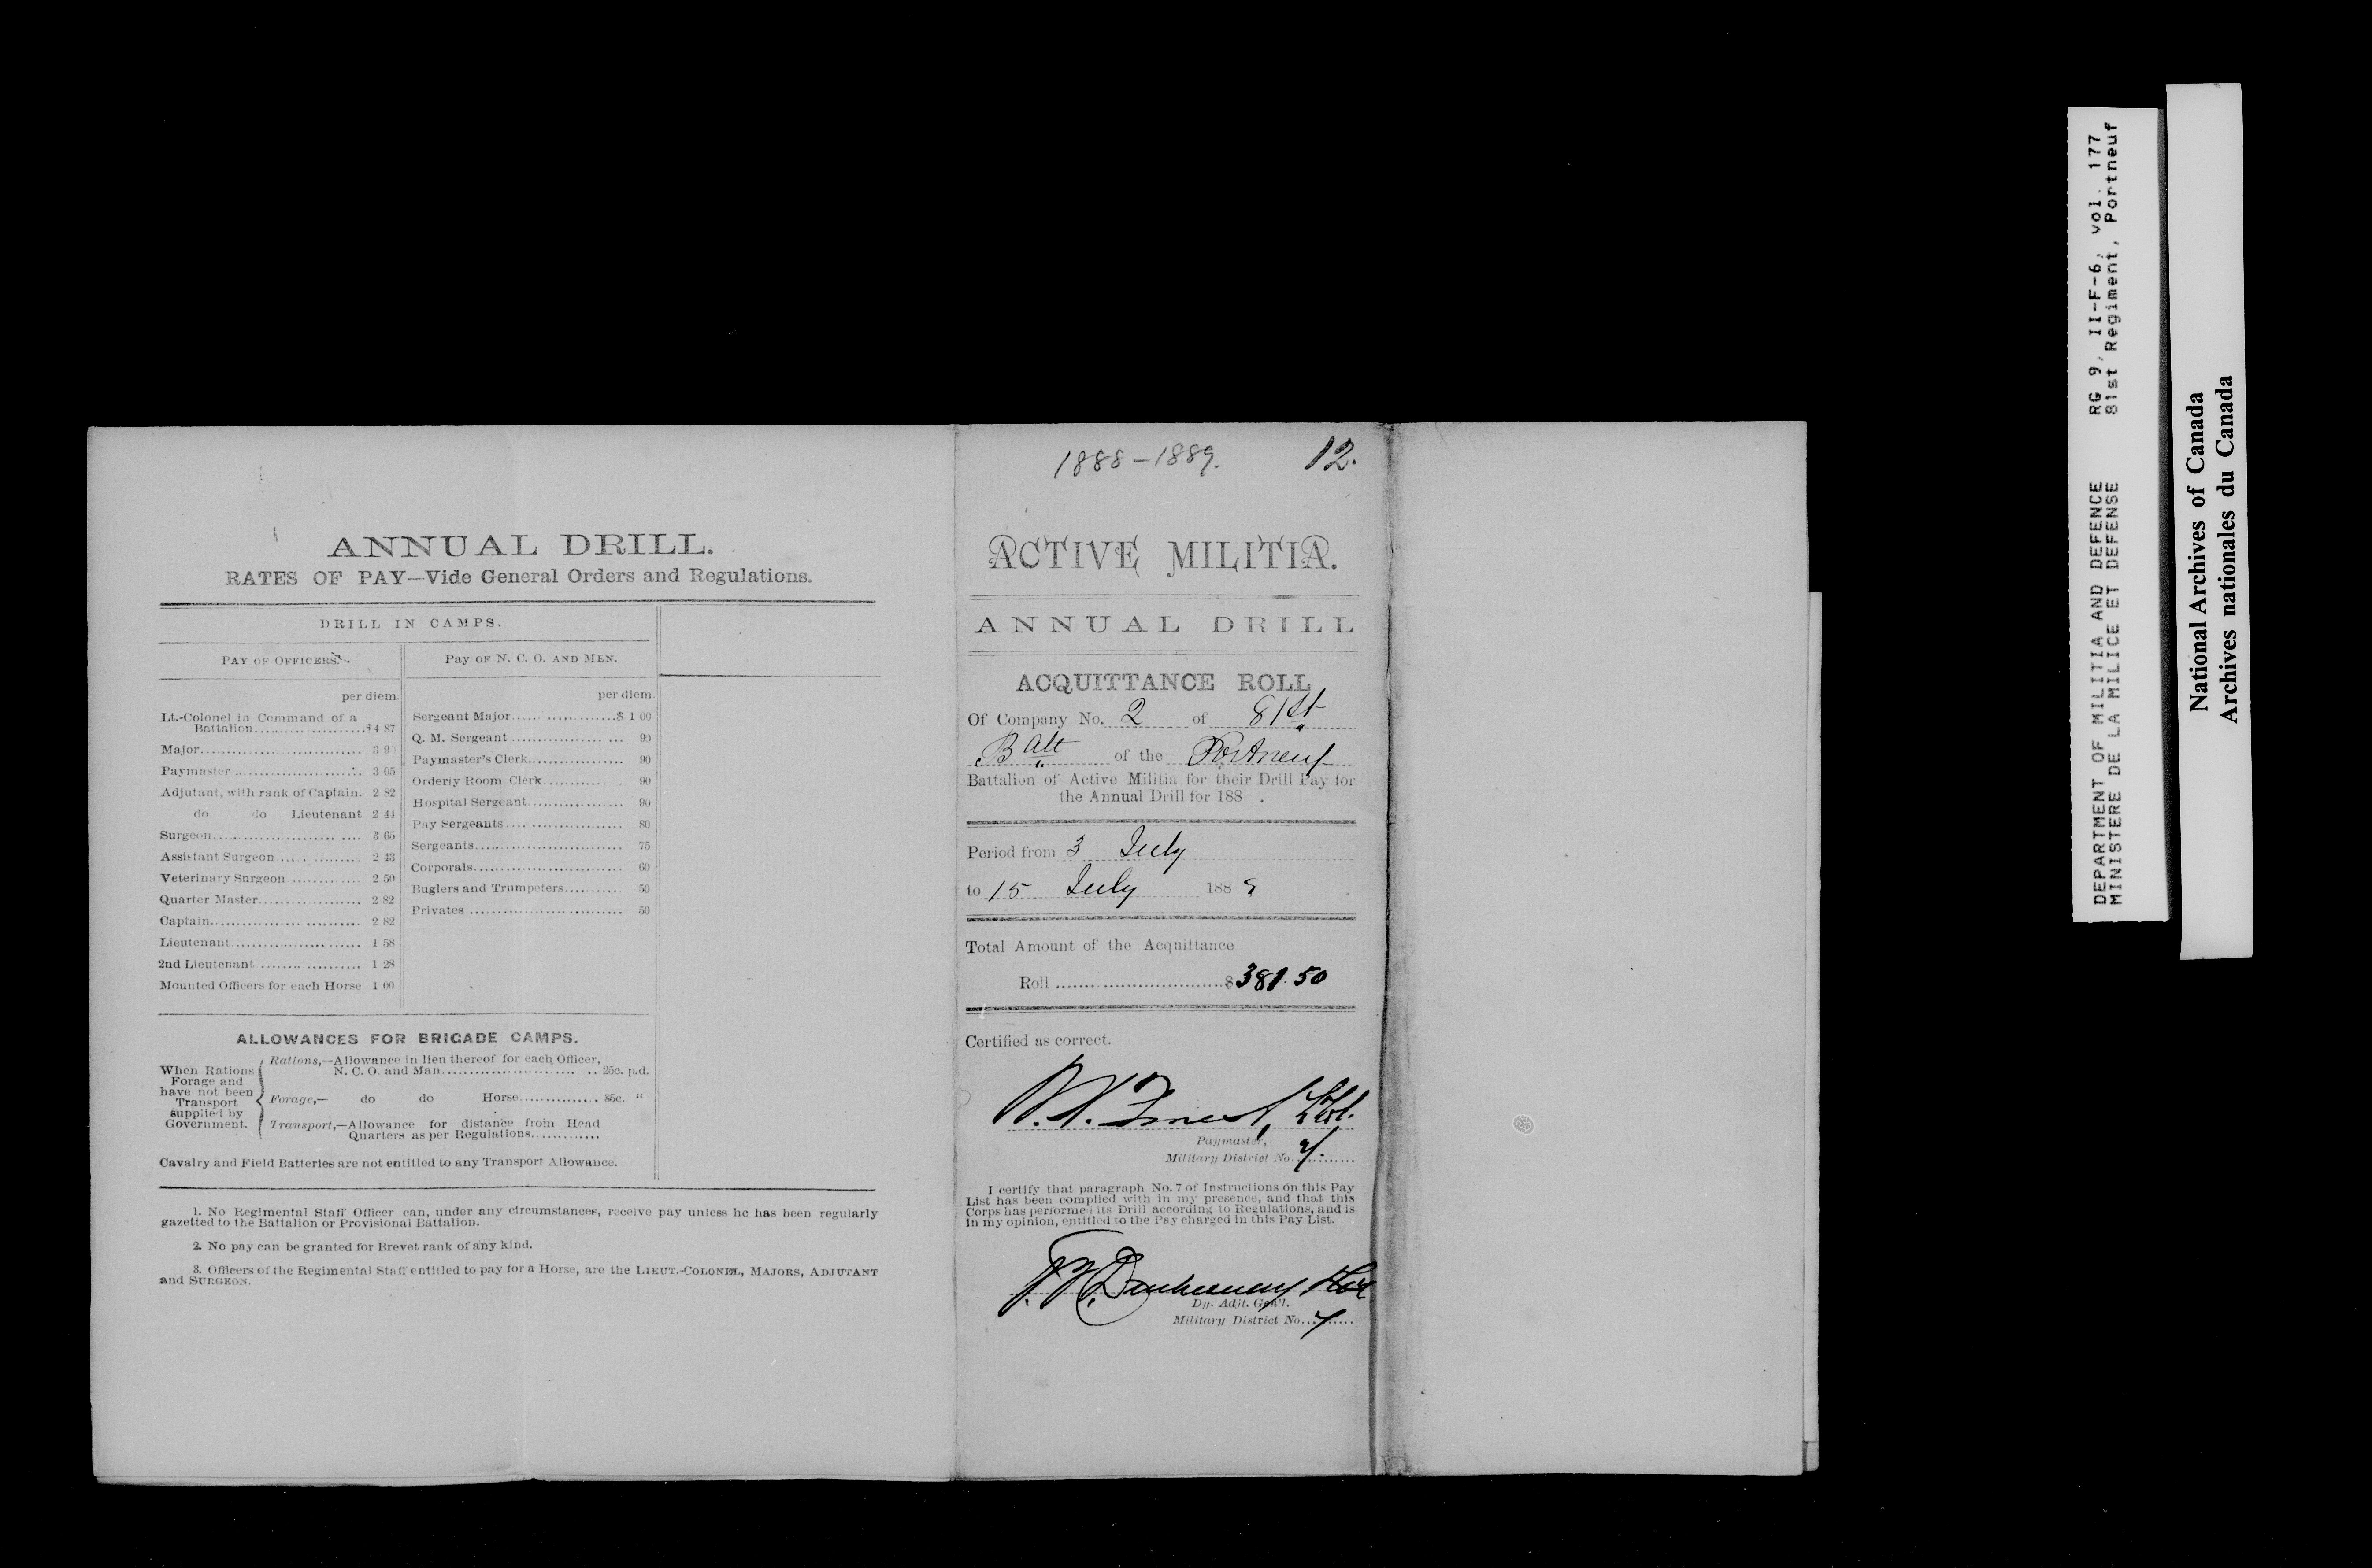 ANNUAL DRILL.
RATES OF PAY—Vide General Orders and Regulations.
DRILL IN CAMPS.
PAY OF OFFICERS.
per diem.
Lt.-Colonel in Command of a
Battalion....................$4 87
Major............................ 3 90
Paymaster ...................... 3 65
Adjutant, with rank of Captain. 2 82
do do Lieutenant 2 44
Surgeon.......................... 3 65
Assistant Surgeon .............. 2 43
Veterinary Surgeon ............. 2 50
Quarter Master.................. 2 82
Captain.......................... 2 82
Lieutenant....................... 1 58
2nd Lieutenant .................. 1 28
Mounted Officers for each Horse 1 00
PAY OF N. C. O. AND MEN.
per diem.
Sergeant Major...................$ 1 00
Q. M. Sergeant .................. 90
Paymaster's Clerk................ 90
Orderly Room Clerk............ 90
Hospital Sergeant................ 90
Pay Sergeants.................... 80
Sergeants........................ 75
Corporals........................ 60
Buglers and Trumpeters.......... 50
Privates ........................ 50
ALLOWANCES FOR BRIGADE CAMPS.
When Rations Forage and have not been Transport supplied by Government.
Rations,—Allowance in lieu thereof for each Officer,
N. C. O. and Man............................ 25c. p.d.
Forage,— do do Horse.............. 35c. "
Transport,—Allowance for distance from Head
Quarters as per Regulations............
Cavalry and Field Batteries are not entitled to any Transport Allowance.
1. No Regimental Staff Officer can, under any circumstances, receive pay unless he has been regularly
gazetted to the Battalion or Provisional Battalion.
2. No pay can be granted for Brevet rank of any kind.
3. Officers of the Regimental Staff entitled to pay for a Horse, are the LIEUT.-COLONEL, MAJORS, ADJUTANT
and SURGEON.
1888-1889. 12.
ACTIVE MILITIA.
ANNUAL DRILL
ACQUITTANCE ROLL
Of Company No. 2 of 81st
Batt of the Portneuf
Battalion of Active Militia for their Drill Pay for
the Annual Drill for 188 .
Period from 3 July
to 15 July 1889
Total Amount of the Acquittance
Roll ..............................$381.50
Certified as correct.
Paymaster,
Military District No. 7.
I certify that paragraph No. 7 of Instructions on this Pay
List has been complied with in my presence, and that this
Corps has performed its Drill according to Regulations, and is
in my opinion, entitled to the Pay charged in this Pay List.
Dy. Adjt. Gen'l.
Military District No. 7
DEPARTMENT OF MILITIA AND DEFENCE RG 9, II-F-6, vol. 177
MINISTERE DE LA MILICE ET DEFENSE 81st Regiment, Portneuf
National Archives of Canada
Archives nationales du Canada